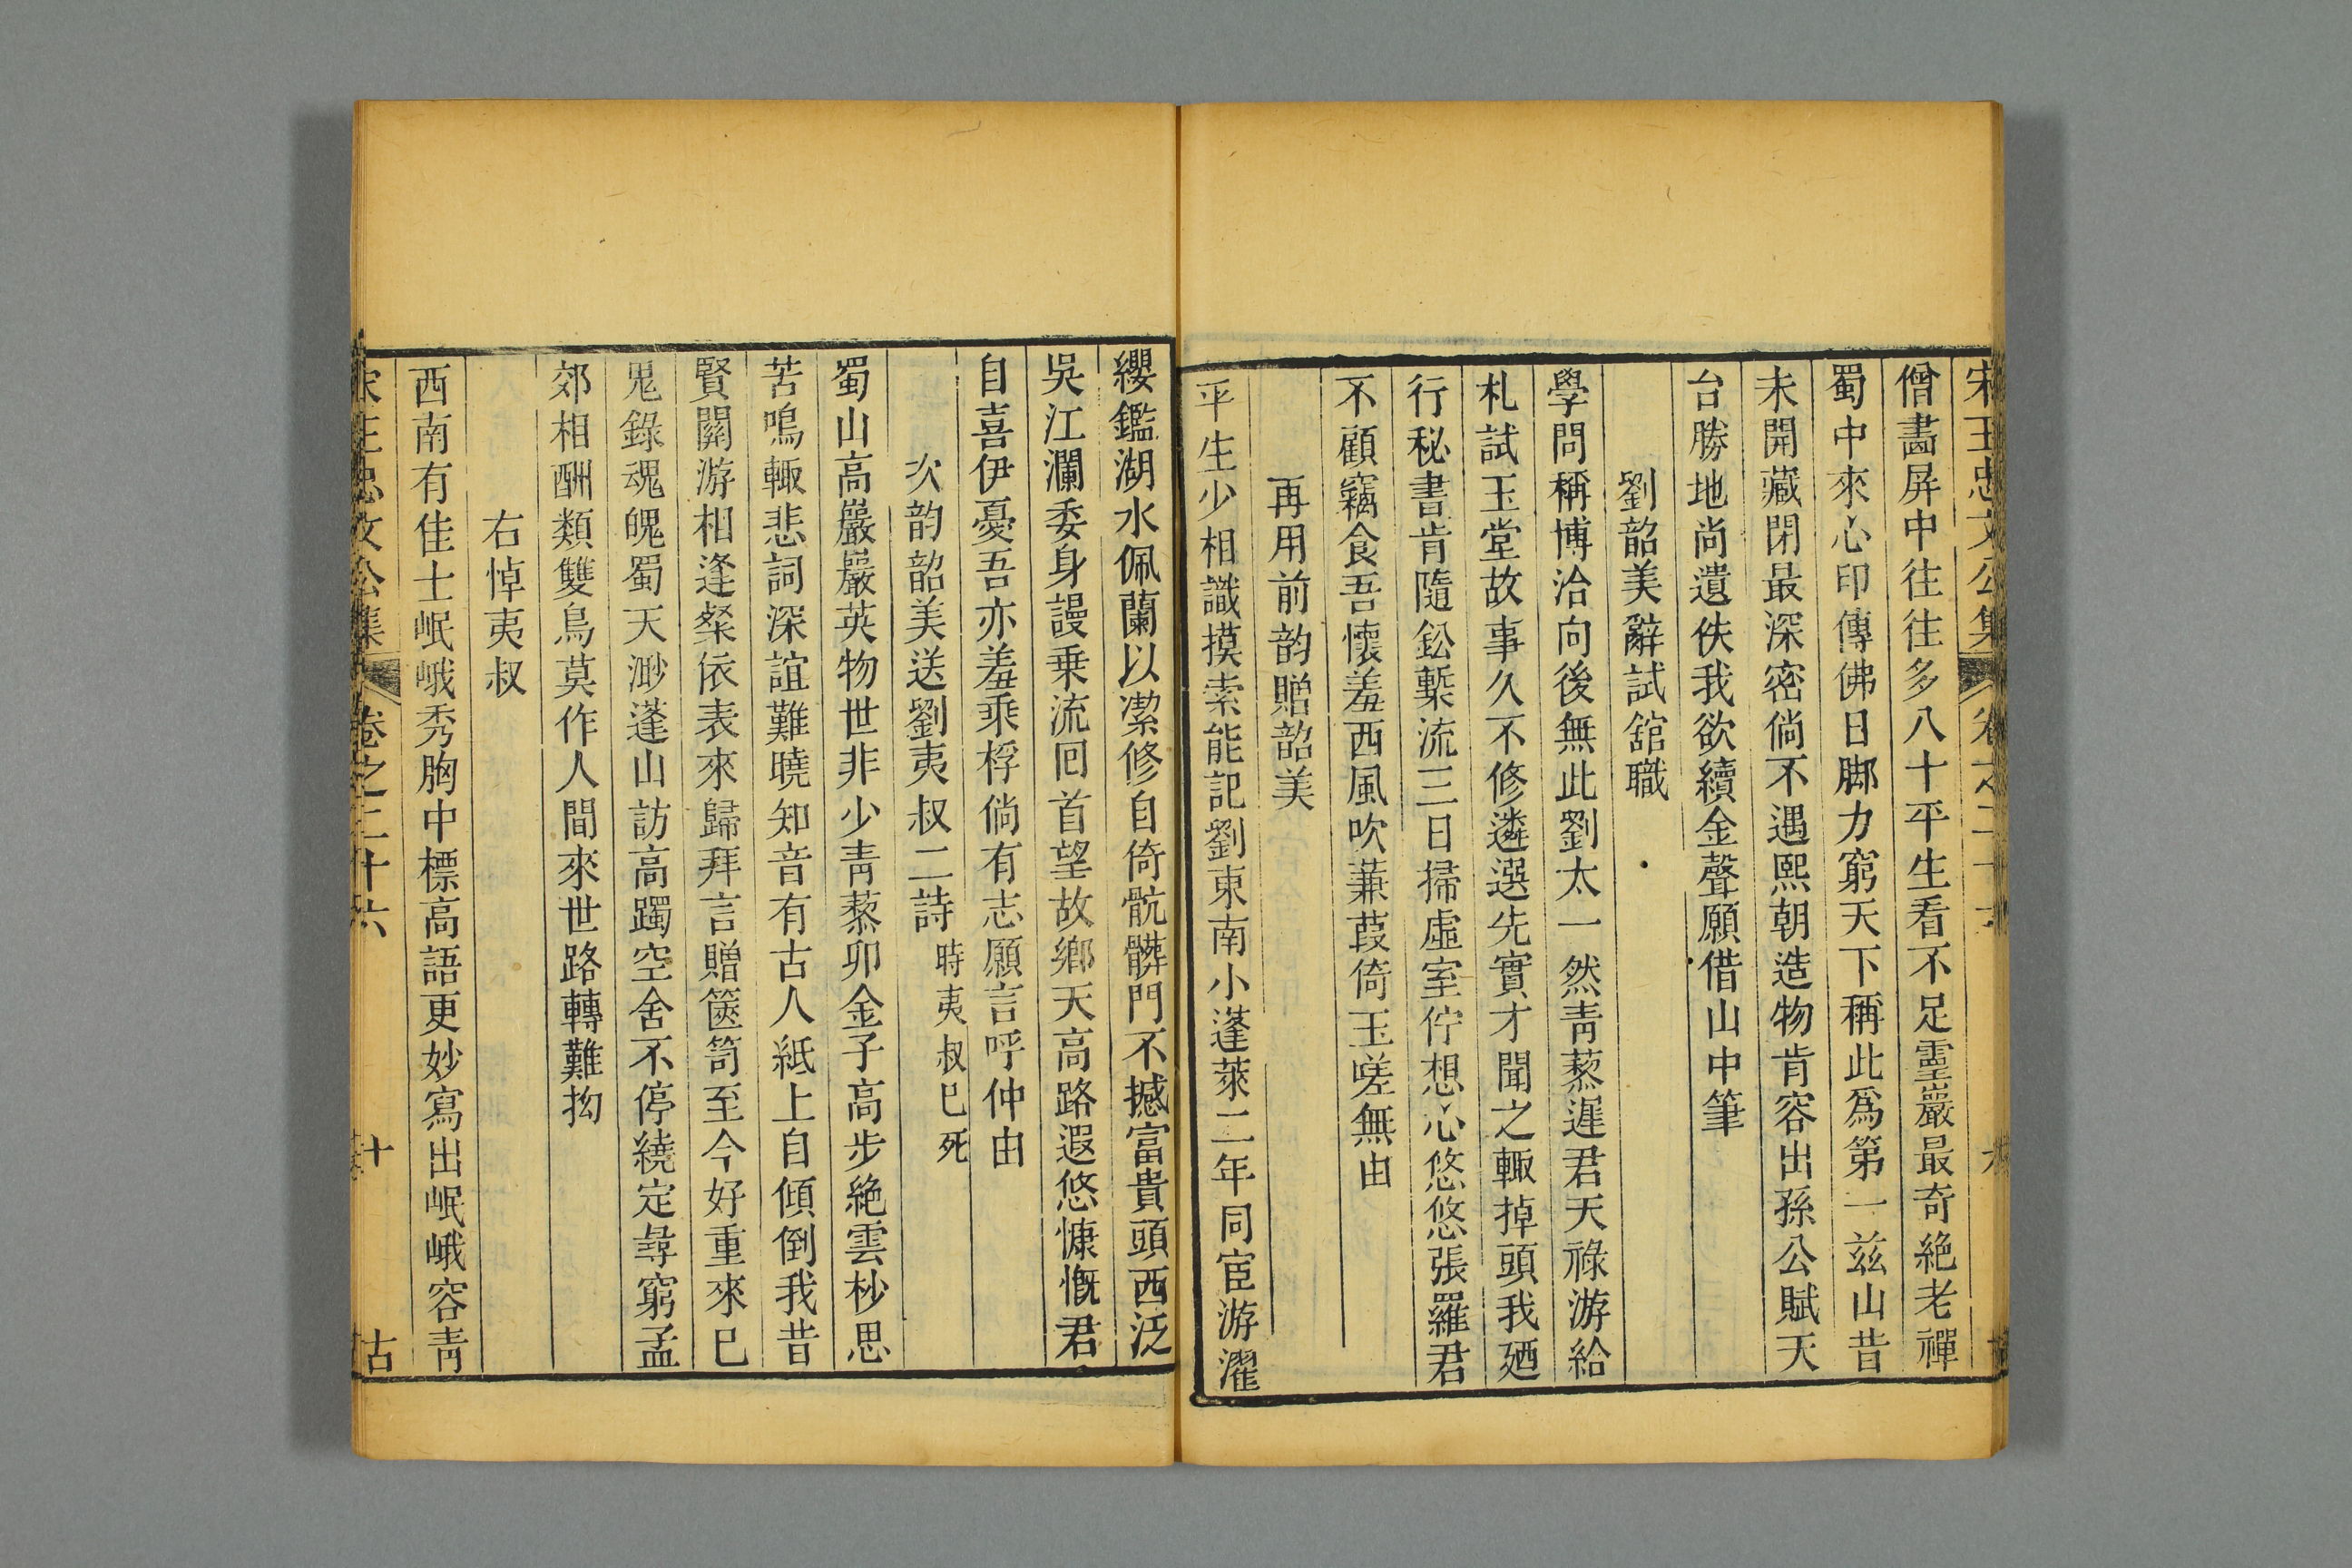 宋王忠文公集 卷之二十六
僧畵屏中往往多八十平生看不足靈巖最奇絶老禪
蜀中來心印傳佛日脚力窮天下稱此爲第一兹山昔
未開藏閉最深密倘不遇熙朝造物肯容出孫公賦天
台勝地尚遺佚我欲續金聲願借山中筆
劉韶美辭試舘職
學問稱博洽向後無此劉太一然靑藜遲君天祿游給
札試玉堂故事久不修遴選先實才聞之輙掉頭我廼
行秘書肯隨鈆槧流三日掃虛室佇想心悠悠張羅君
不顧竊食吾懷羞西風吹蒹葭倚玉嗟無由
再用前韵贈韶美
平生少相識摸索能記劉東南小蓬萊二年同宦游濯
纓鑑湖水佩蘭以潔修自倚骯髒門不撼富貴頭西泛
吳江瀾委身謾乗流囘首望故鄉天高路遐悠慷慨君
自喜伊憂吾亦羞乘桴倘有志願言呼仲由
次韵韶美送劉夷叔二詩 時夷叔巳死
蜀山高巖巖英物世非少靑藜卯金子高步絶雲杪思
苦鳴輙悲詞深誼難曉知音有古人紙上自傾倒我昔
賢關游相逢粲依表來歸拜言贈篋笥至今好重來巳
鬼錄魂魄蜀天渺蓬山訪高躅空舍不停繞定尋窮孟
郊相酬類雙鳥莫作人間來世路轉難抝
右悼夷叔
西南有佳士岷峨秀胸中標高語更妙寫出岷峨容靑
宋王忠文公集 卷之二十六 十 古